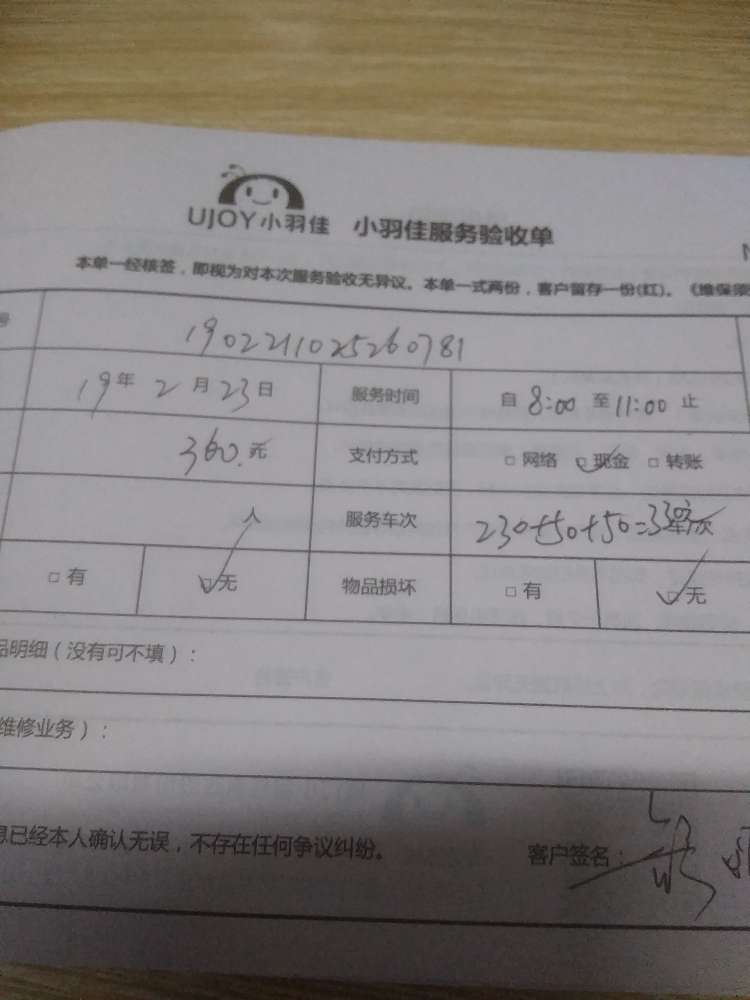 UJOY小羽佳 小羽佳服务验收单
本单一经核签，即视为对本次服务验收无异议。本单一式两份，客户留存一份(红)。《维保须
号 1902211025260781
19年 2月 23日 服务时间 自 8:00 至 11:00 止
360.元 支付方式 □网络 ☑现金 □转账
人 服务车次 230+50+50=330
□有 ☑无 物品损坏 □有 ☑无
品明细（没有可不填）：
维修业务）：
息已经本人确认无误，不存在任何争议纠纷。 客户签名：